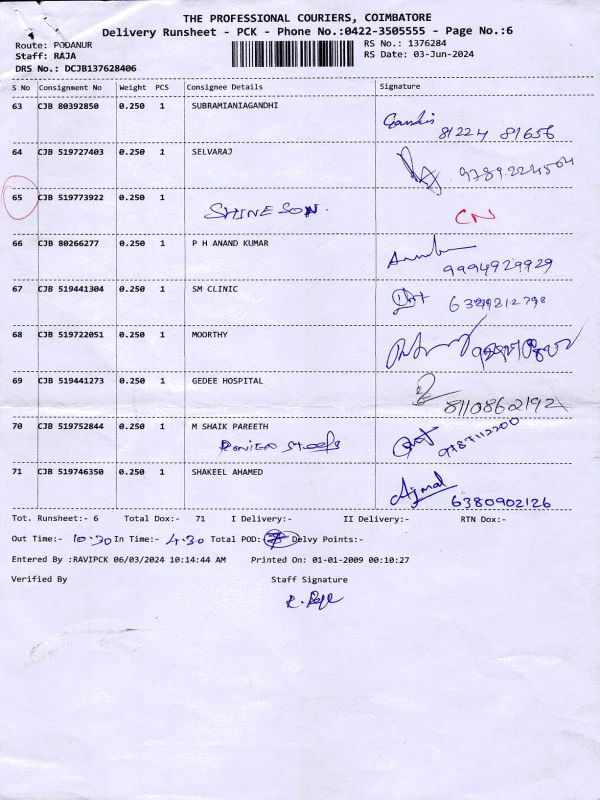 THE PROFESSIONAL COURIERS, COIMBATORE
Delivery Runsheet - PCK - Phone No.:0422-3505555 - Page No.:6
Route: PODANUR
Staff: RAJA
DRS No.: DCJB137628406
RS No.: 1376284
RS Date: 03-Jun-2024
S No Consignment No Weight PCS Consignee Details Signature
63 CJB 80392850 0.250 1 SUBRAMIANIAGANDHI
81224 81656
64 CJB 519727403 0.250 1 SELVARAJ
9789224504
65 CJB 519773922 0.250 1 SHINE SON. CN
66 CJB 80266277 0.250 1 P H ANAND KUMAR
9994929929
67 CJB 519441304 0.250 1 SM CLINIC
6379212798
68 CJB 519722051 0.250 1 MOORTHY
69 CJB 519441273 0.250 1 GEDEE HOSPITAL
8110862192
70 CJB 519752844 0.250 1 M SHAIK PAREETH
9787112200
71 CJB 519746350 0.250 1 SHAKEEL AHAMED
Ajmal 6380902126
Tot. Runsheet:- 6 Total Dox:- 71 I Delivery:- II Delivery:- RTN Dox:-
Out Time:- 10.30 In Time:- 4.30 Total POD:- Delvy Points:-
Entered By :RAVIPCK 06/03/2024 10:14:44 AM Printed On: 01-01-2009 00:10:27
Verified By Staff Signature